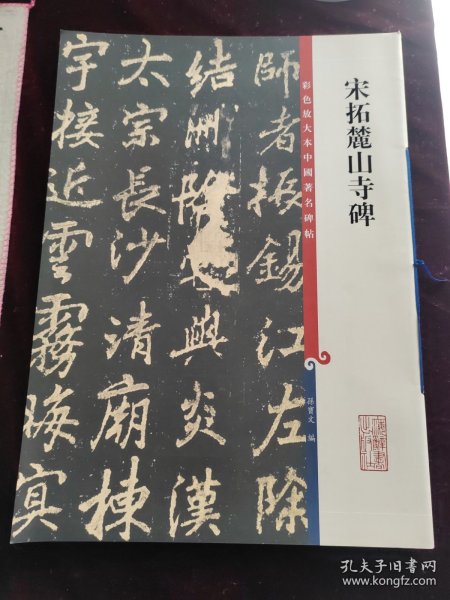 宋拓麓山寺碑
彩色放大本中國著名碑帖
孫寶文 編
師者振錫江左除
結 與炎漢
太宗長沙清廟棟
宇接近雲霧晦冥
孔夫子旧书网
www.kongfz.com